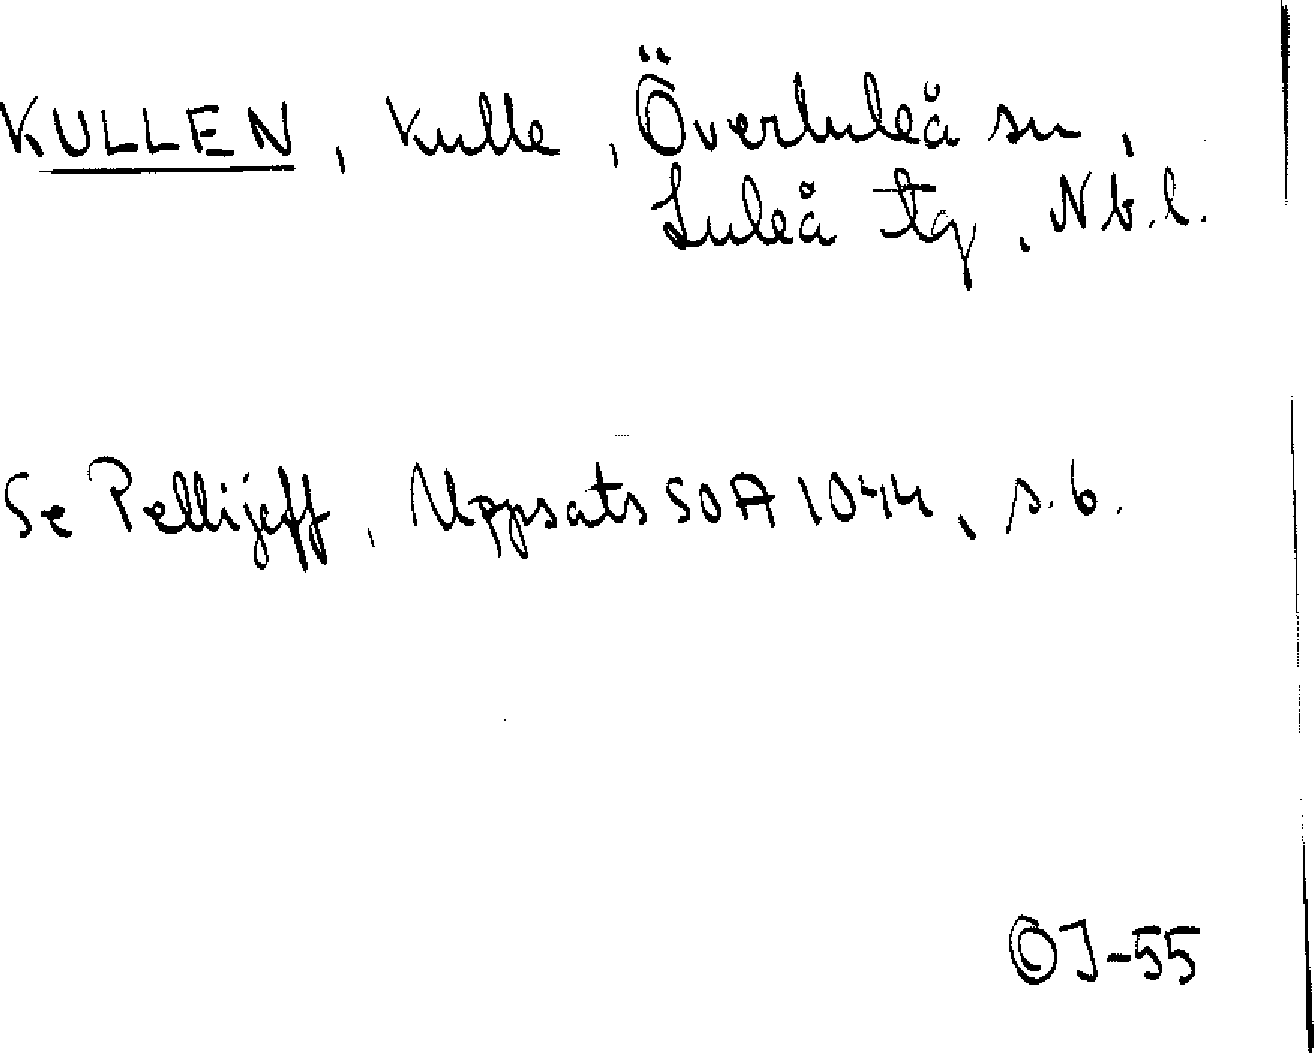 KULLEN, kulle, Överluleå sn,
Luleå tg, Nb.l.
Se Pellijeff, Uppsats SOA 1044, s. 6.
OJ-55